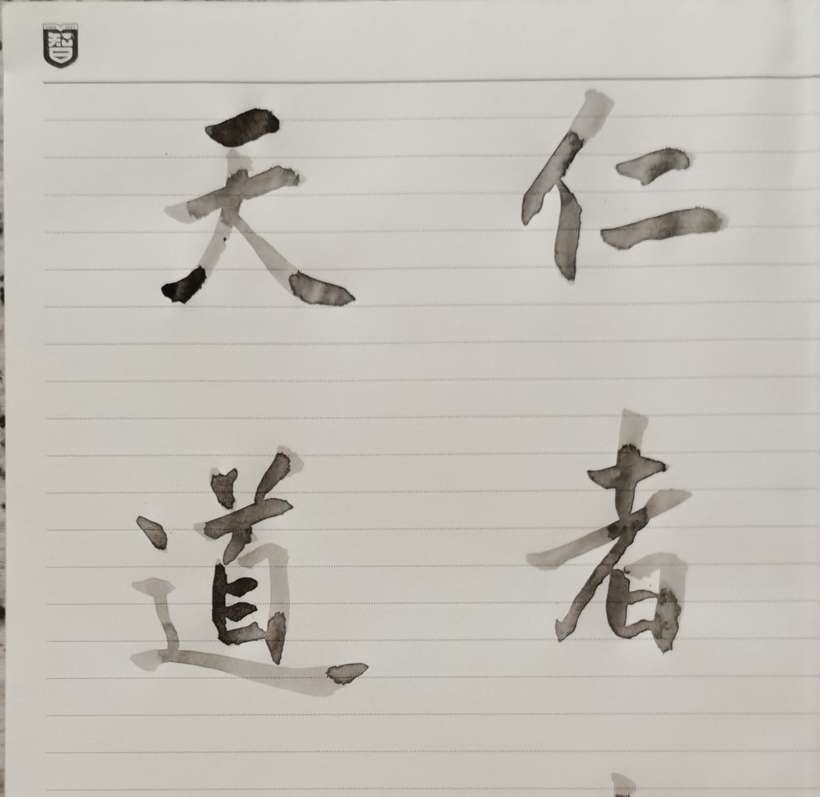 仁者
天道